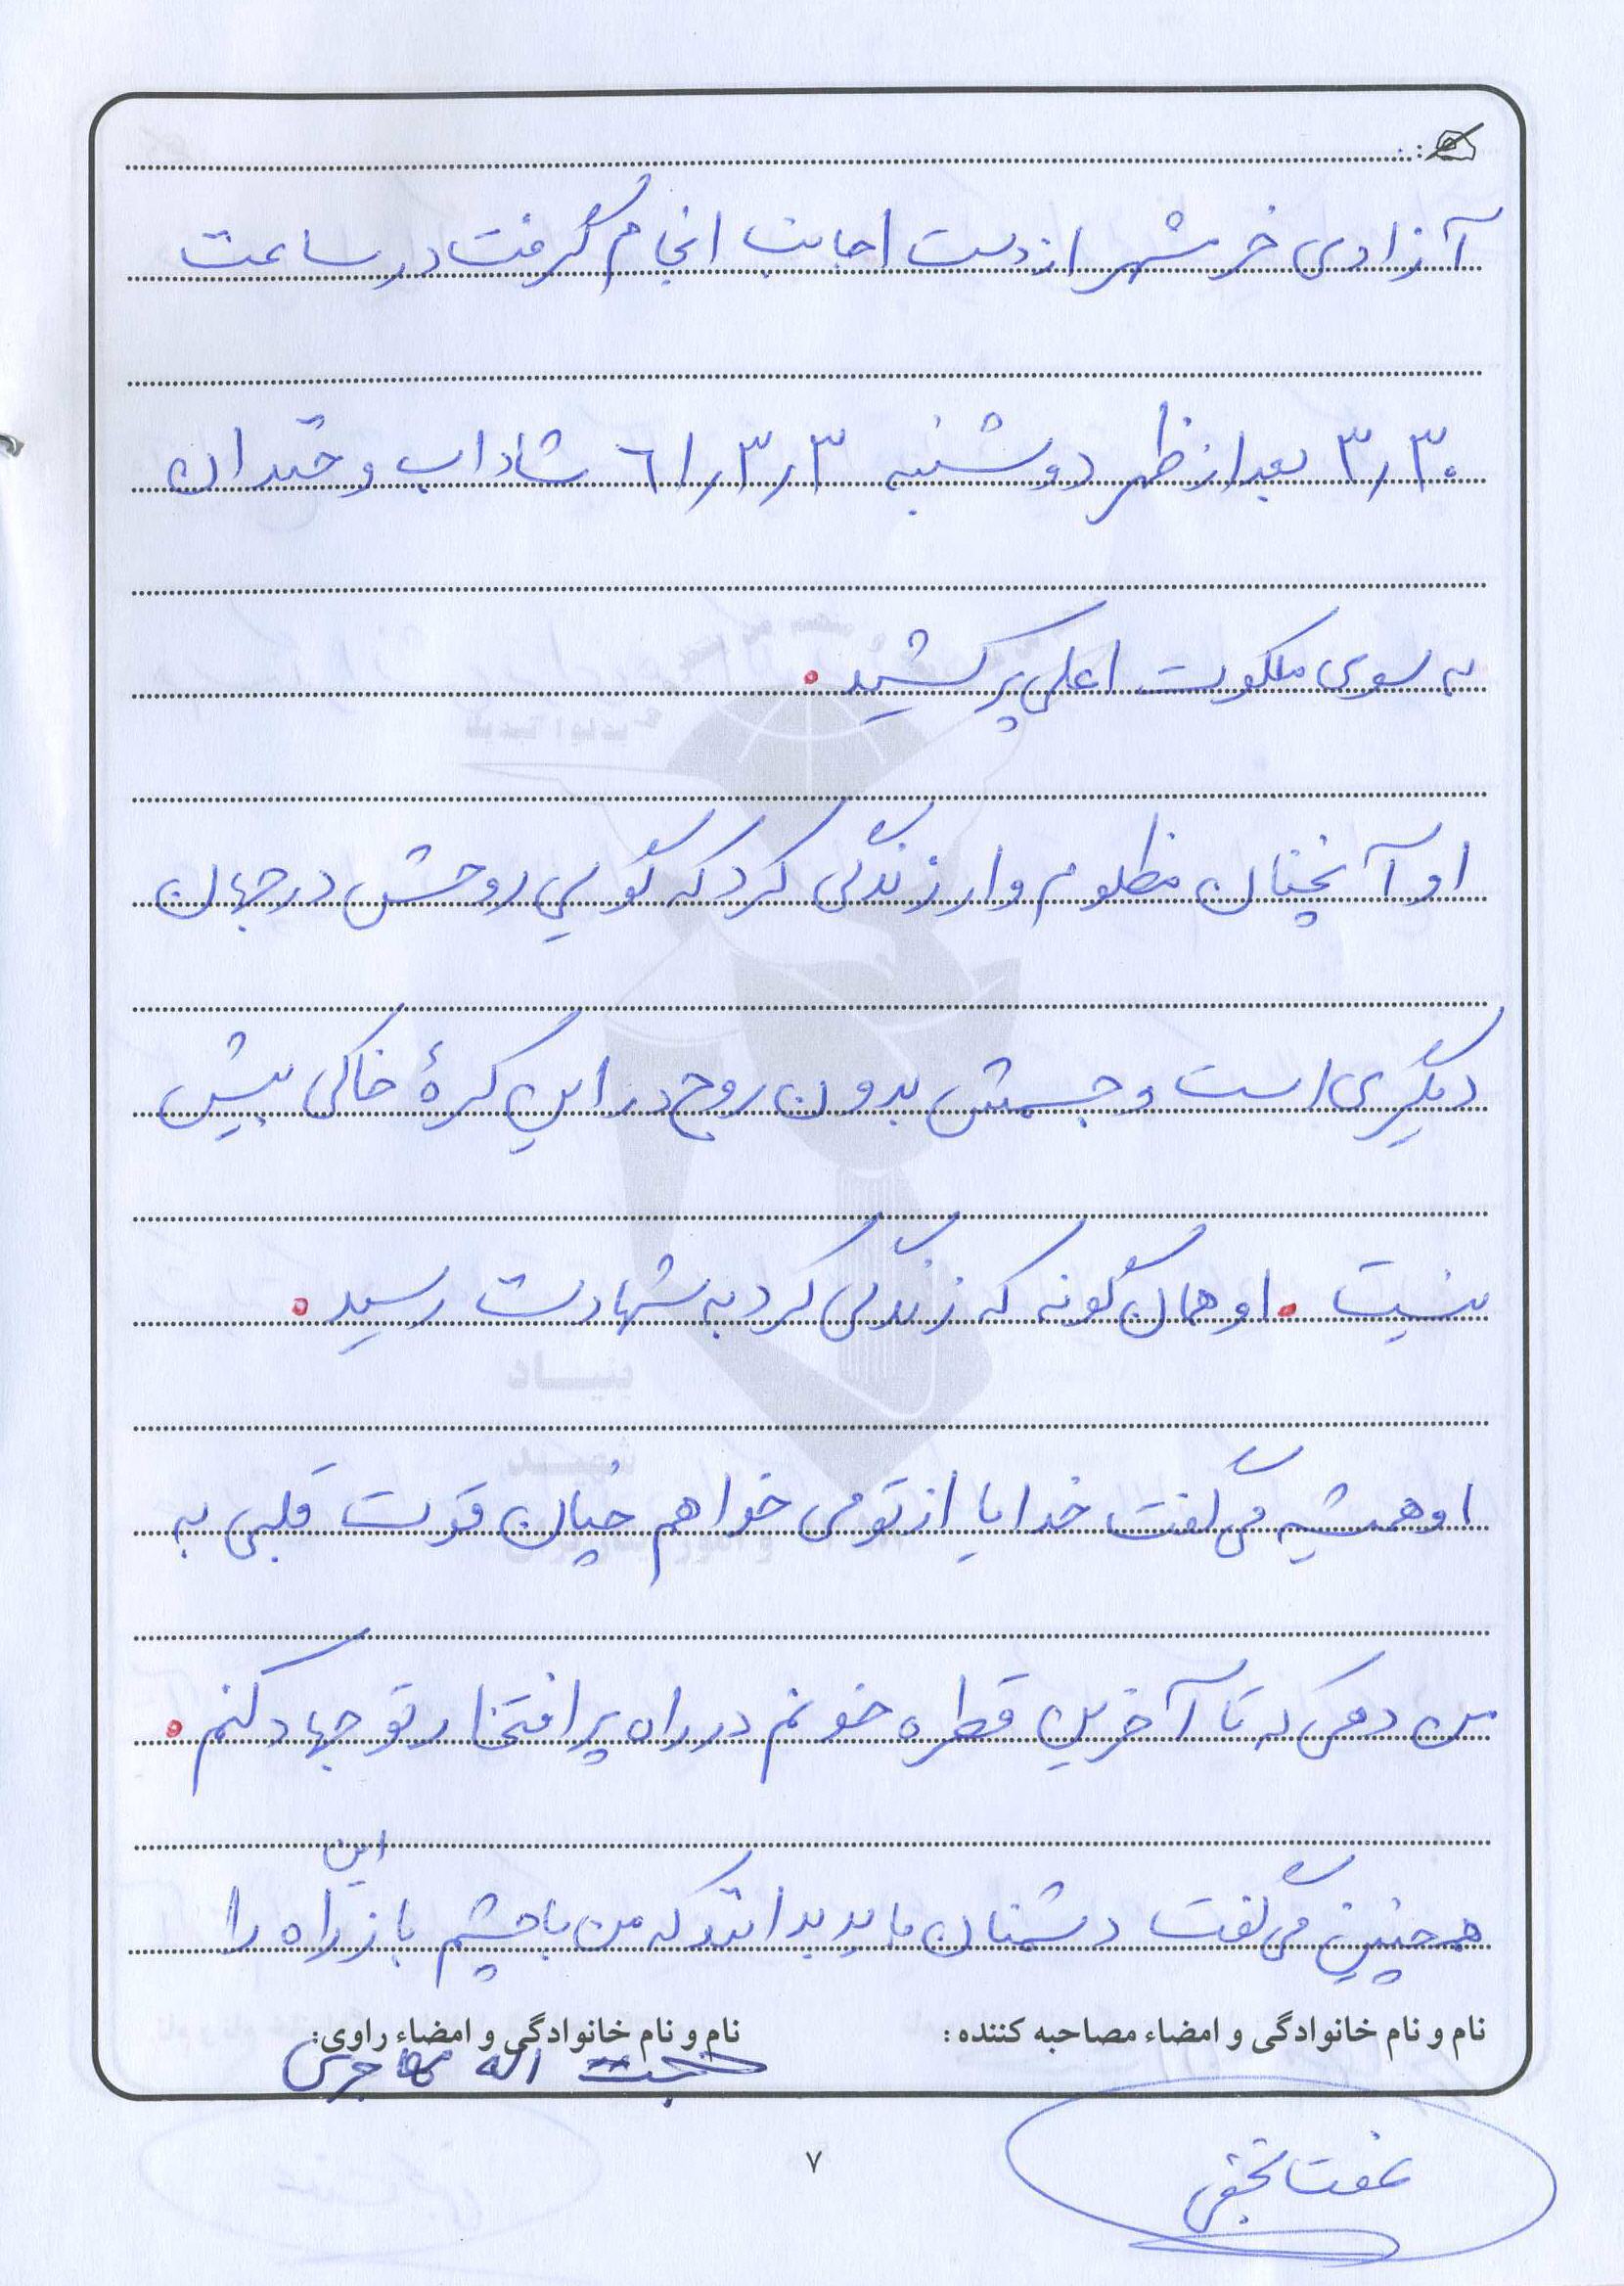 آزادی خرمشهر از دست اجانب انجام گرفت در ساعت
۳٫۳۰ بعد از ظهر دوشنبه ۶۱٫۳٫۳ شاداب و خندان
به سوی ملکوت اعلی پر کشید.
او آنچنان مظلوم وار زندگی کرد که گویی روحش در جهان
دیگری است و جسمش بدون روح در این کرهٔ خاکی بیش
نیست. او همان گونه که زندگی کرد به شهادت رسید.
او همیشه می گفت خدایا از تو می خواهم چنان قوت قلبی به
من دهی که تا آخرین قطره خونم در راه پر افتخار تو جهاد کنم.
همچنین می گفت دشمنان باید بدانند که من با چشم باز این راه را
نام و نام خانوادگی و امضاء مصاحبه کننده :
نام و نام خانوادگی و امضاء راوی:
حجت اله
عفت نجفی
۷
بنیاد
شهید
و امور